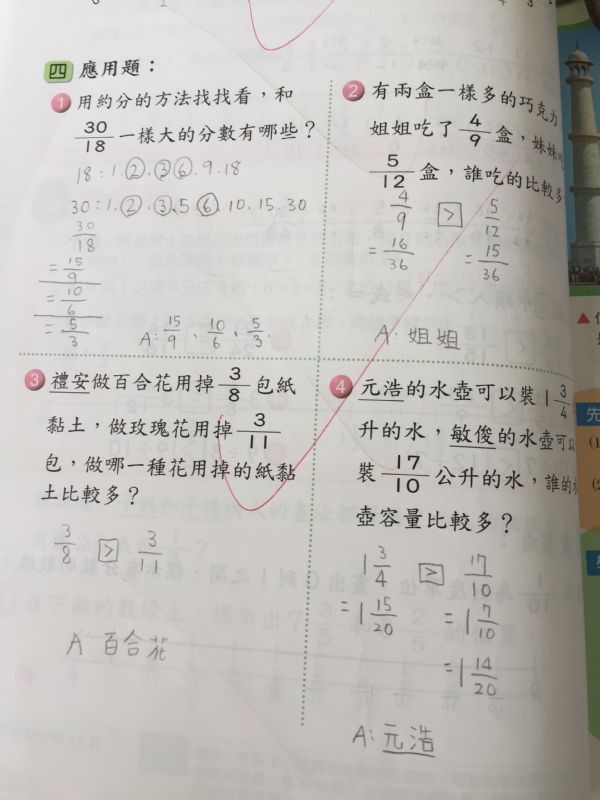 四 應用題：
1 用約分的方法找找看，和
30/18 一樣大的分數有哪些？
18：1.2.3.6.9.18
30：1.2.3.5.6.10.15.30
30/18
= 15/9
= 10/6
= 5/3
A：15/9、10/6、5/3.
2 有兩盒一樣多的巧克力
姐姐吃了 4/9 盒，妹妹吃
5/12 盒，誰吃的比較多
4/9 > 5/12
= 16/36 = 15/36
A：姐姐
3 禮安做百合花用掉 3/8 包紙
黏土，做玫瑰花用掉 3/11
包，做哪一種花用掉的紙黏
土比較多？
3/8 > 3/11
A 百合花
4 元浩的水壺可以裝 1 3/4
升的水，敏俊的水壺可以
裝 17/10 公升的水，誰的水
壺容量比較多？
1 3/4 > 17/10
= 1 15/20 = 1 7/10
= 1 14/20
A：元浩
先